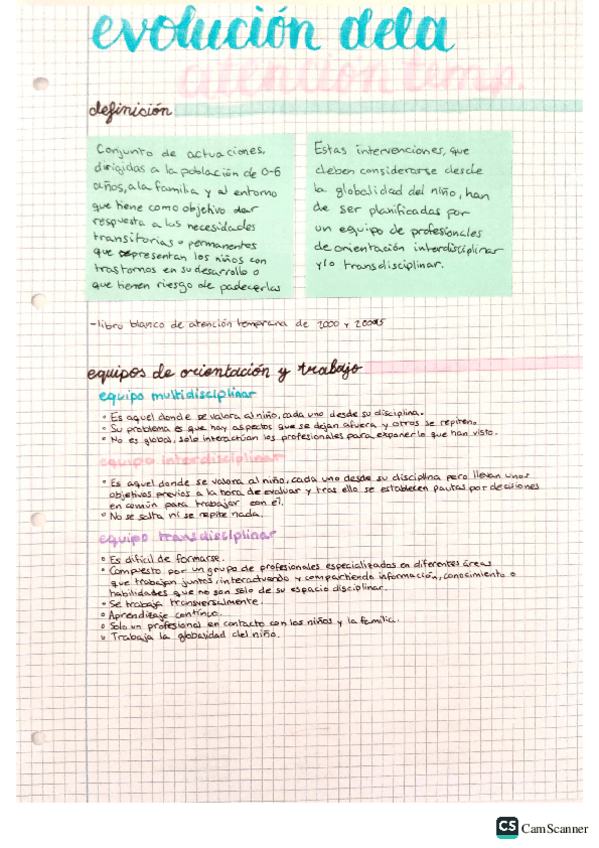 evolución dela
atención temp.
definisión
Conjunto de actuaciones,
dirigidas a la población de 0-6
años, a la familia y al entorno
que tiene como objetivo dar
respuesta a las necesidades
transitorias o permanentes
que representan los niños con
trastornos en su desarrollo o
que tienen riesgo de padecerlas
Estas intervenciones, que
deben considerarse desde
la globalidad del niño, han
de ser planificadas por
un equipo de profesionales
de orientación interdisciplinar
y/o transdisciplinar.
-libro blanco de atención temprana de 2000 y
equipos de orientación y trabajo
equipo multidisciplinar
• Es aquel donde se valora al niño, cada uno desde su disciplina.
• Su problema es que hay aspectos que se dejan afuera y otros se repiten.
• No es global, solo interactúan los profesionales para exponer lo que han visto.
equipo interdisciplinar
• Es aquel donde se valora al niño, cada uno desde su disciplina pero llevan unos
objetivos previos a la hora de evaluar y tras ello se establecen pautas por decisiones
en común para trabajar con él.
• No se salta ni se repite nada.
equipo transdisciplinar
• Es difícil de formarse.
• Compuesto por un grupo de profesionales especializados en diferentes áreas
que trabajan juntos, interactuando y compartiendo información, conocimiento o
habilidades que no son solo de su espacio disciplinar.
• Se trabaja transversalmente.
• Aprendizaje continuo.
• Solo un profesional en contacto con los niños y la familia.
• Trabaja la globalidad del niño.
CS CamScanner